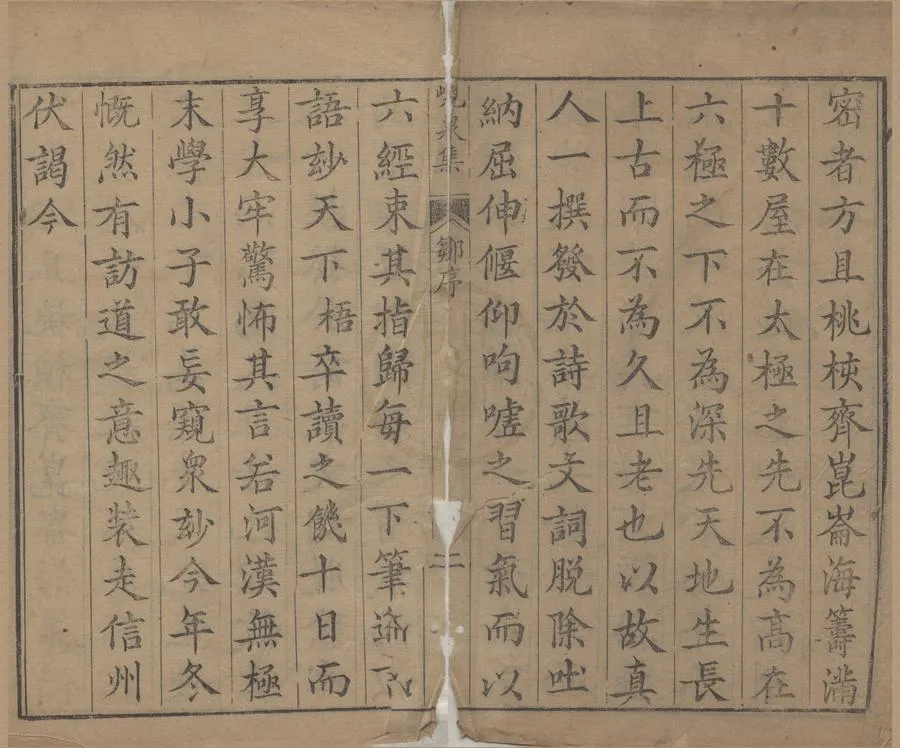 密者方且桃核齊崑崙海籌滿
十數屋在太極之先不為高在
六極之下不為深先天地生長
上古而不為久且老也以故真
人一撰發於詩歌文詞脫除吐
納屈伸偃仰呴噓之習氣而以
峴泉集
鄒序
二
六經束其指歸每一下筆
語玅天下梧卒讀之饑十日而
享大牢驚怖其言若河漢無極
末學小子敢妄窺衆玅今年冬
慨然有訪道之意趣装走信州
伏謁今